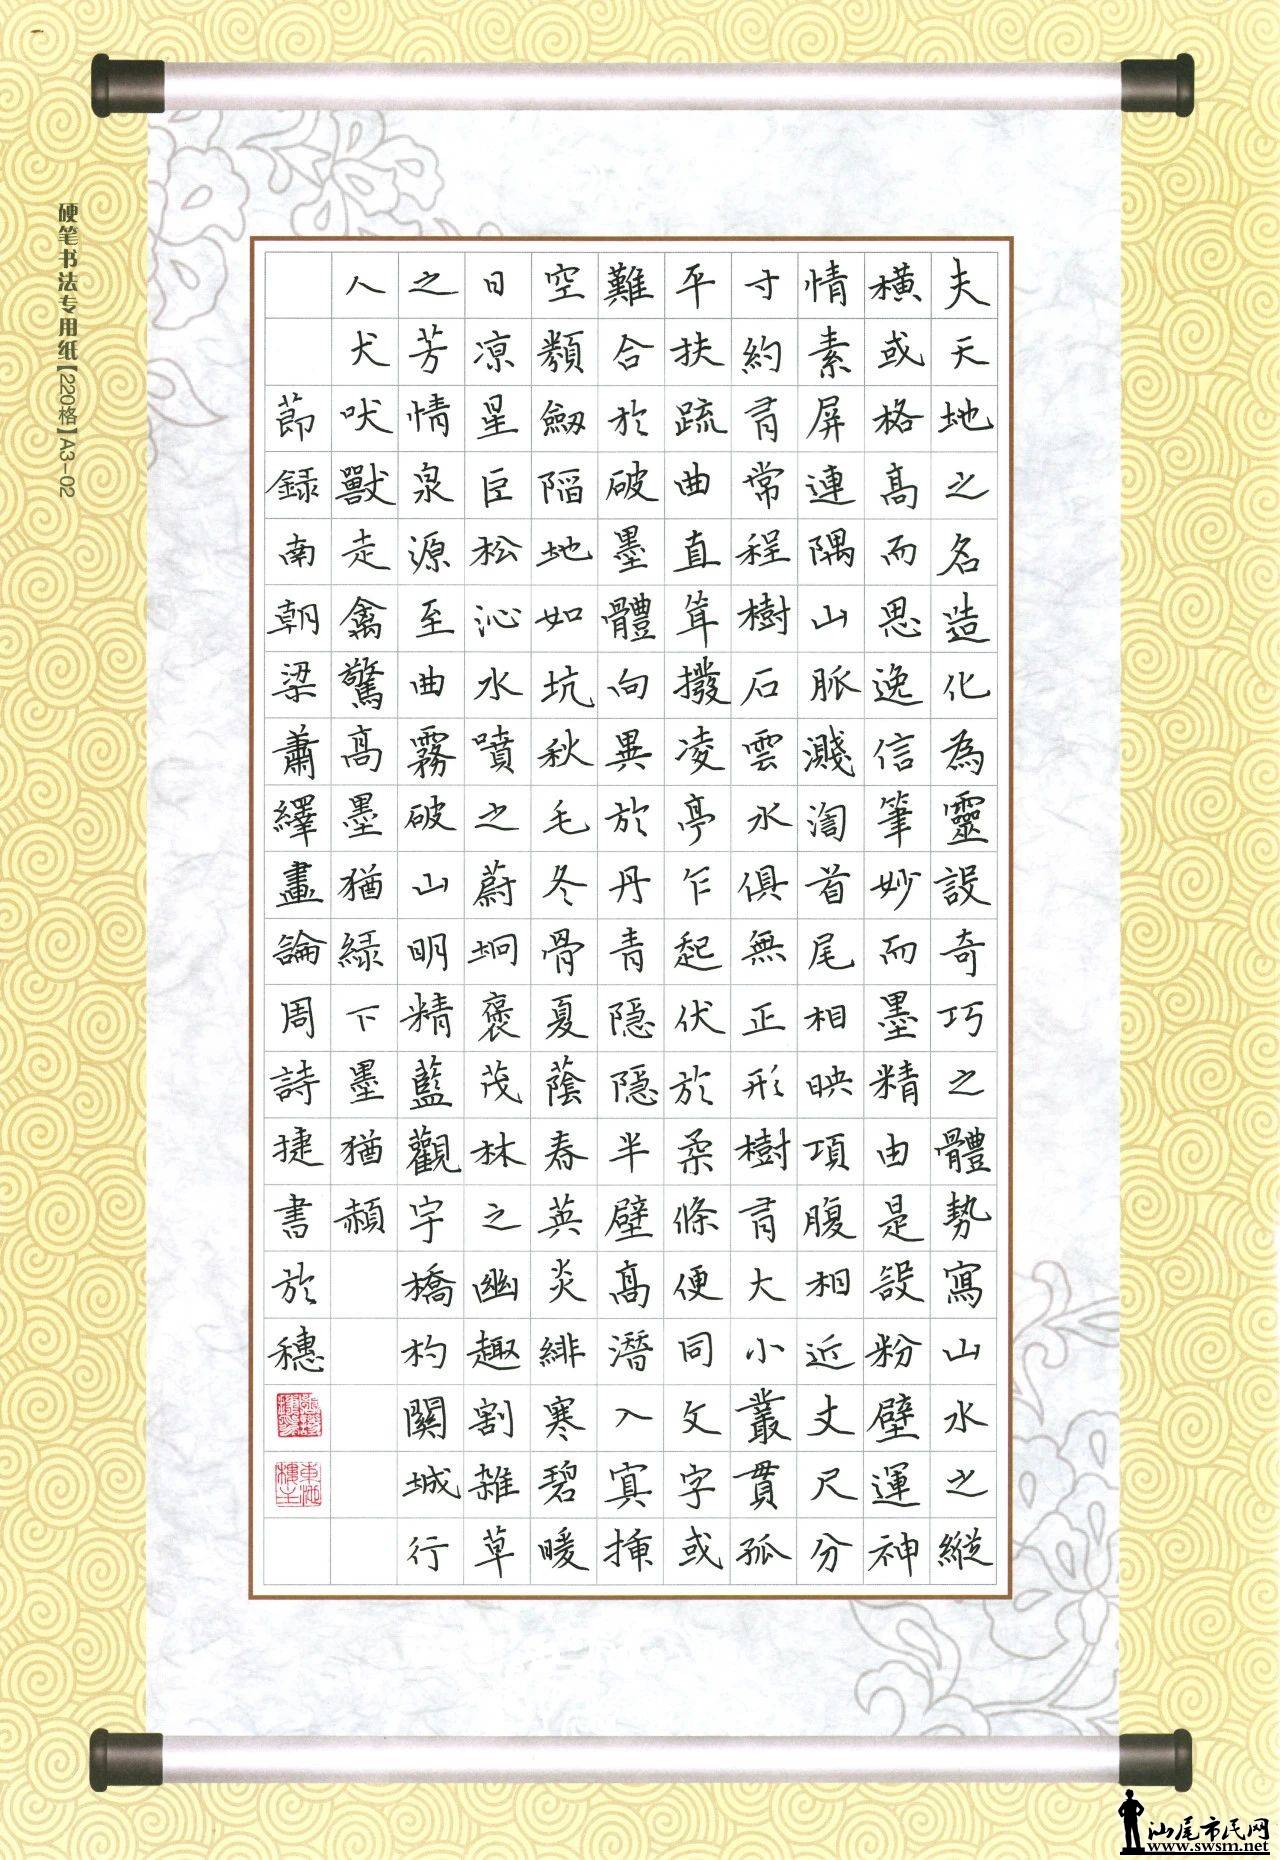 夫天地之名造化為靈設奇巧之體勢寫山水之縱
橫或格高而思逸信筆妙而墨精由是設粉壁運神
情素屏連隅山脈濺渹首尾相映項腹相近丈尺分
寸約有常程樹石雲水俱無正形樹有大小叢貫孤
平扶疏曲直耸撥凌亭乍起伏於柔條便同文字或
難合於破墨體向異於丹青隱隱半壁高潛入冥插
空類劍陷地如坑秋毛冬骨夏蔭春英炎緋寒碧暖
日凉星巨松沁水噴之蔚坰褒茂林之幽趣割雜草
之芳情泉源至曲霧破山明精藍觀宇橋杓關城行
人犬吠獸走禽驚高墨猶綠下墨猶頳
節錄南朝梁蕭繹畫論周詩捷書於穗
硬笔书法专用纸【220格】A3-02
汕尾市民网
www.swsm.net